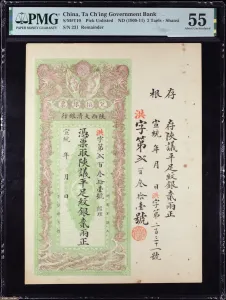 PMG
China, Ta Ch'ing Government Bank
Pick Unlisted ND (1909-11) 2 Taels
S/N 231 Remainder
55
存根
存陝議平足紋銀貳兩正
宣統 年 月 日
洪字第二百三十一號
洪字第貳百叁拾壹號
陝西大清銀行
洪字第貳百叁拾壹號
憑票取陝議平足紋銀貳兩正
宣統 年 月 日